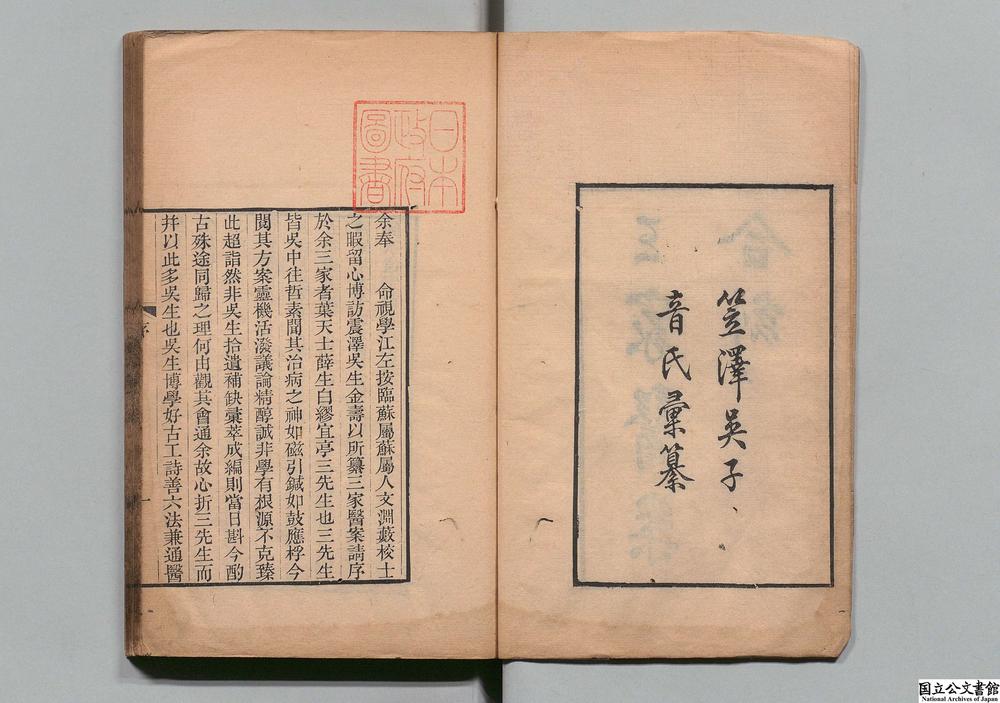 笠澤吳子
音氏彙纂
日本
政府
圖書
余奉　命視學江左按臨蘇屬蘇屬人文淵藪校士
之暇留心博訪震澤吳生金壽以所纂三家醫案請序
於余三家者葉天士薛生白繆宜亭三先生也三先生
皆吳中往哲素聞其治病之神如磁引鍼如鼓應桴今
閱其方案靈機活潑議論精醇誠非學有根源不克臻
此超詣然非吳生拾遺補缺彙萃成編則當日斟今酌
古殊途同歸之理何由觀其會通余故心折三先生而
幷以此多吳生也吳生博學好古工詩善六法兼通醫
序
一
国立公文書館
National Archives of Japan